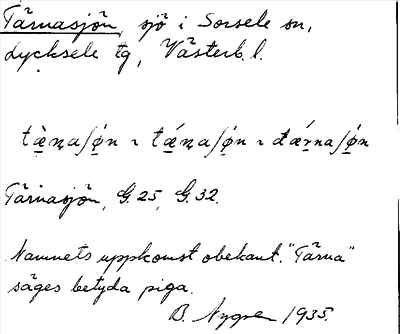 Tärnasjön, sjö i Sorsele sn,
Lycksele tg, Västerb. l.
tæ̀ṇaʃǿn ~ tǽṇaʃǿn ~ tǽṛnaʃǿn
Tärnasjön, G. 25, G. 32.
Namnets uppkomst obekant. "Tärna"
säges betyda piga.
B. Nygren 1935.